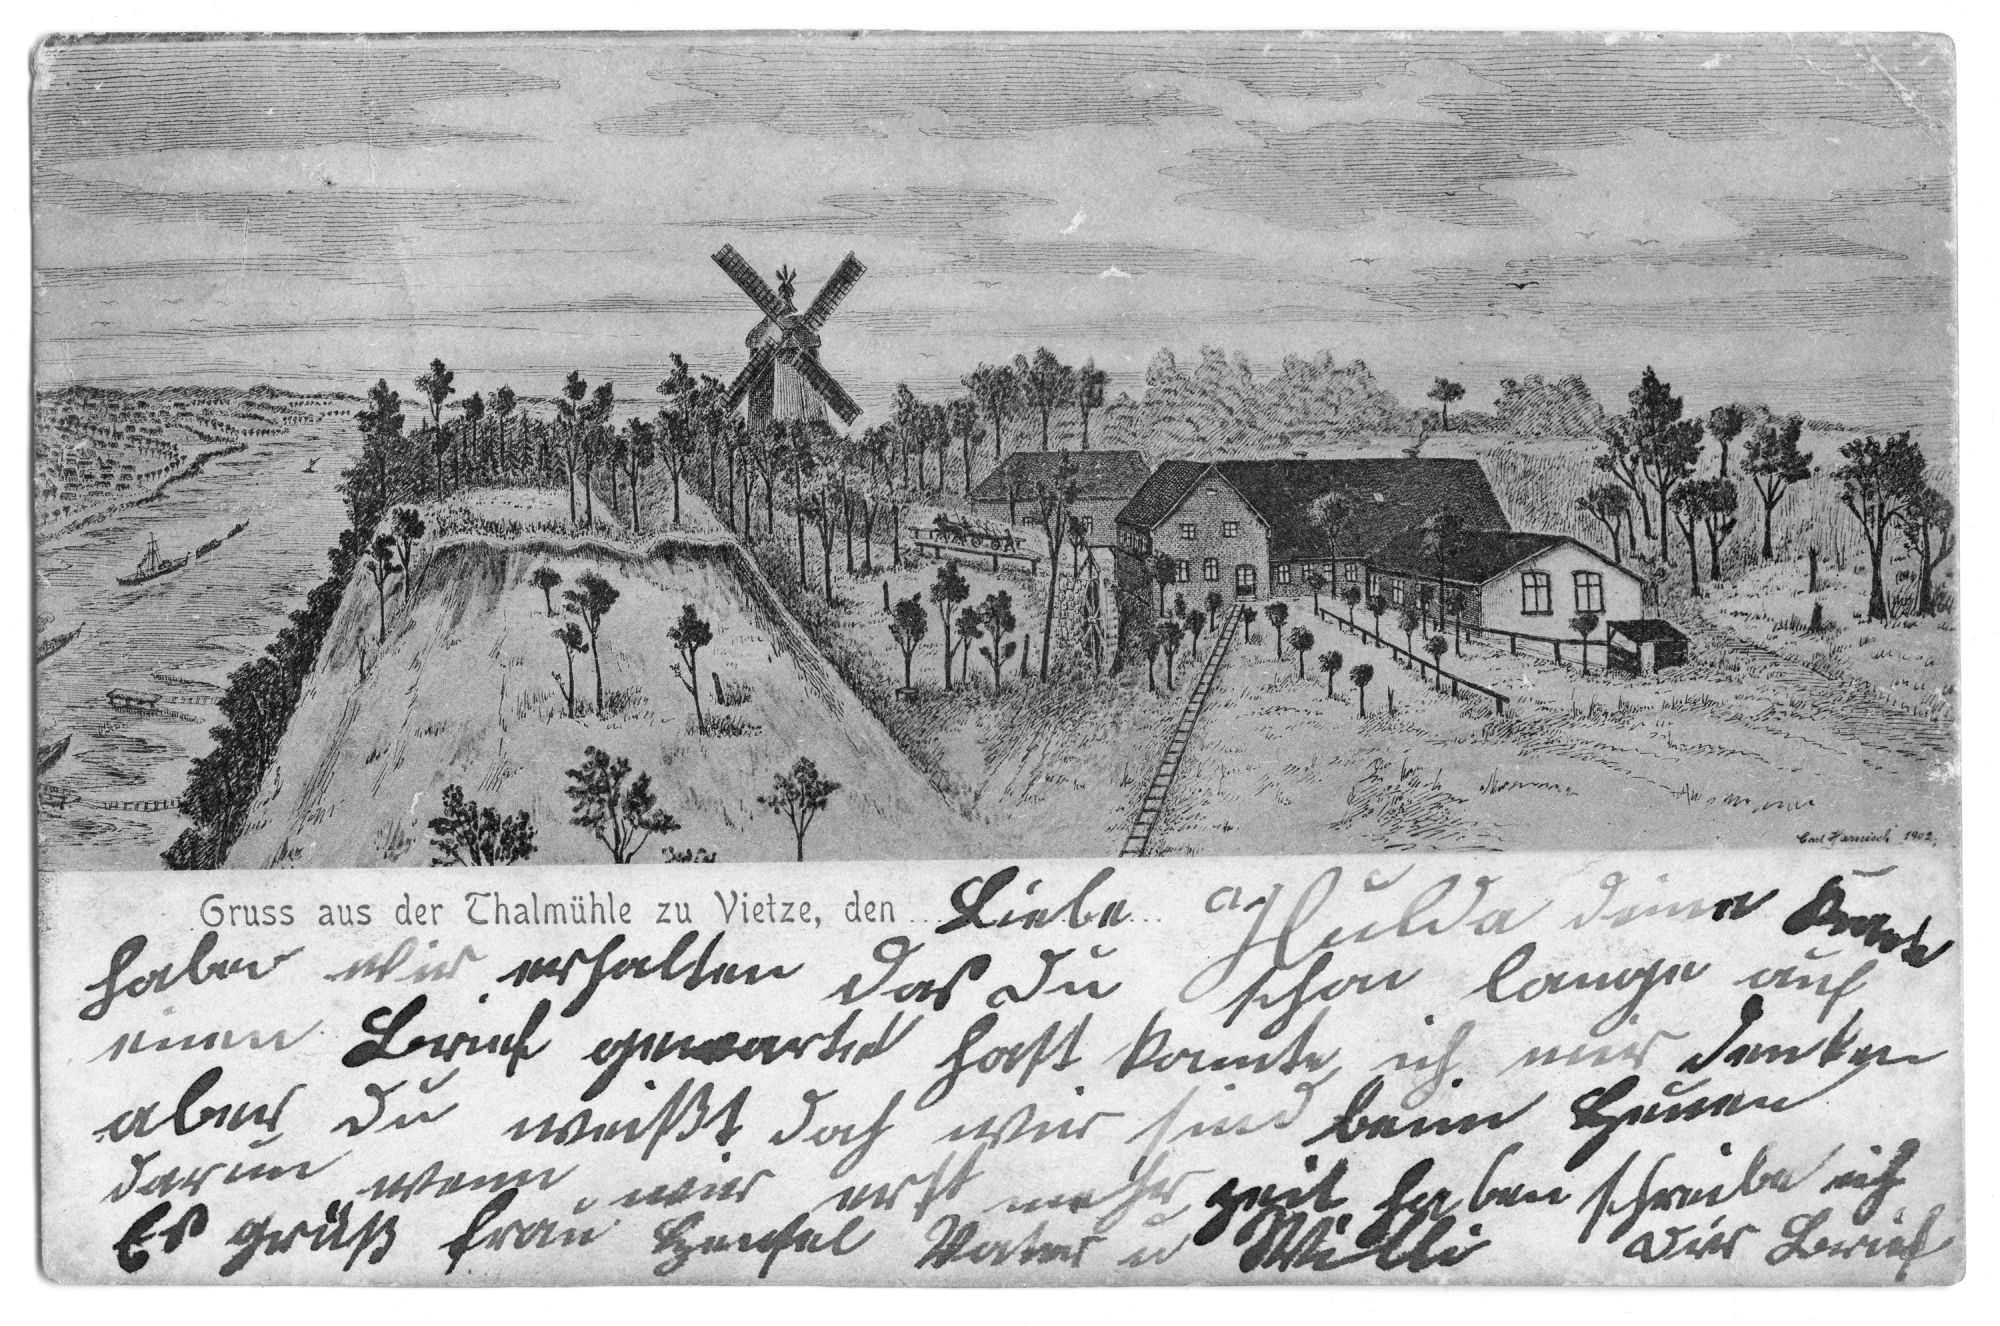 Carl Harnisch 1902.
Gruss aus der Thalmühle zu Vietze, den Liebe Hulda deine Karte
haben wir erhalten das Du schon lange auf
einen Brief gewartet hast kannte ich mir denken
aber Du weißt doch wir sind beim Heuen
darum wenn wir erst mehr zeit haben schreibe ich
Es grüß Frau Vater u Willi Dir Brief